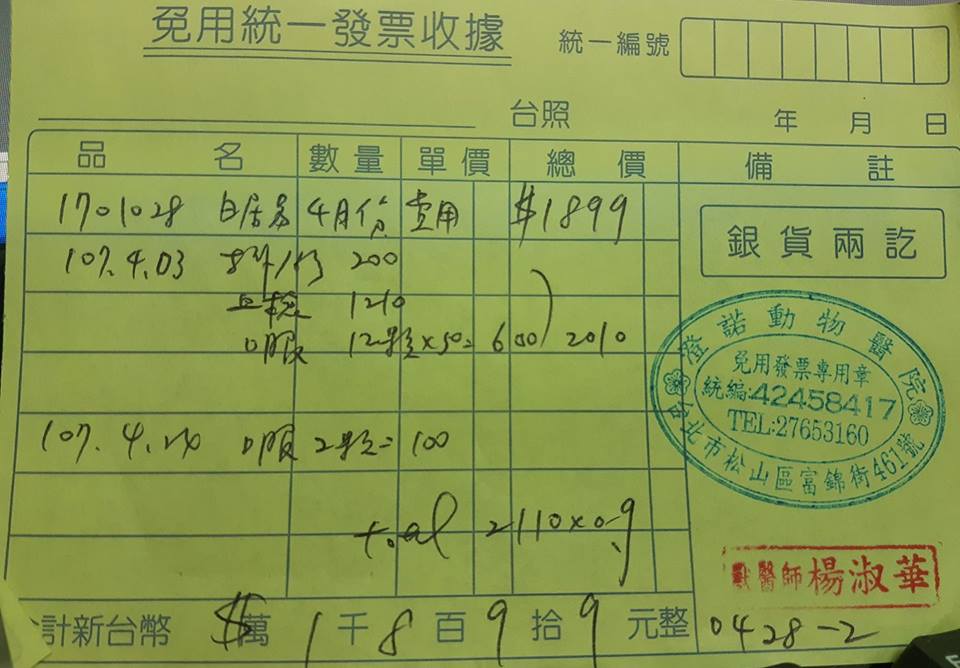 免用統一發票收據
統一編號
台照 年 月 日
品 名 數量 單價 總 價 備 註
1701028 白居易 4月份 費用 $1899
銀貨兩訖
107.4.03 200
血檢 1210
口服 12顆×50= 600 2010
澄諾動物醫院
免用發票專用章
統編:42458417
TEL:27653160
台北市松山區富錦街461號
107.4.24 口服 2顆= 100
total 2110×0.9
獸醫師楊淑華
合計新台幣 $萬 1千8百9拾9元整
0428-2